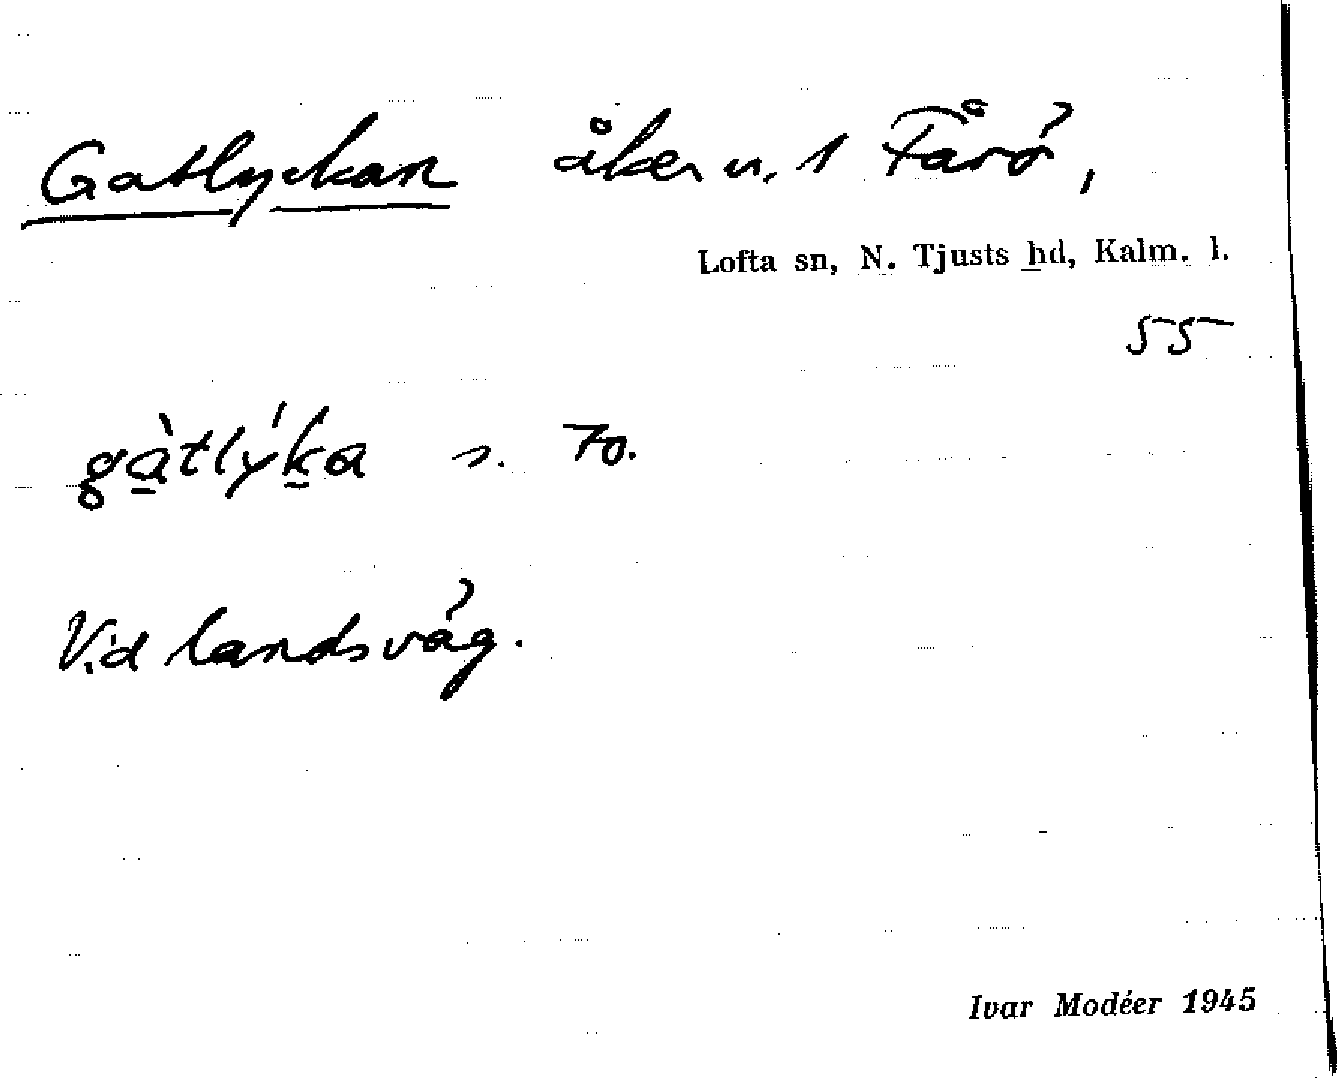 Gatlyckan åker u. 1 Fårö,
Lofta sn, N. Tjusts hd, Kalm. l.
55
gàtlýka s. 70.
Vid landsväg.
Ivar Modéer 1945